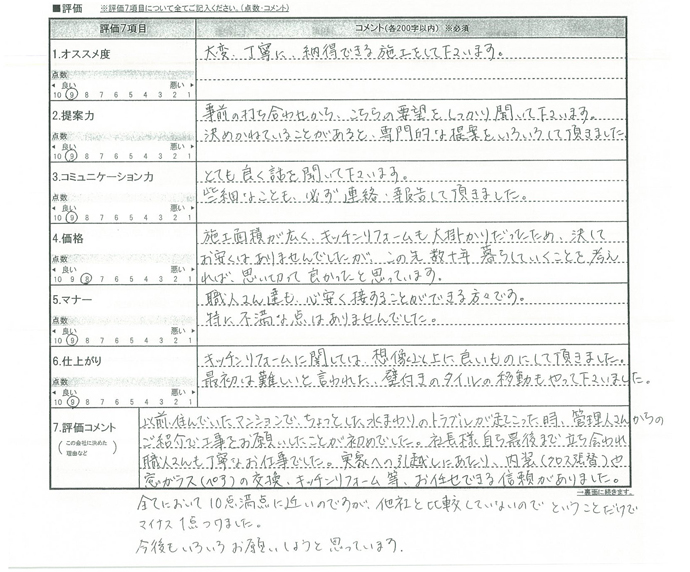 ■評価 ※評価7項目について全てご記入ください。(点数・コメント)
評価7項目 コメント(各200字以内) ※必須
1.オススメ度
大変、丁寧に、納得できる施工をして下さいます。
点数
良い 悪い
10 9 8 7 6 5 4 3 2 1
2.提案力
事前の打ち合わせから、こちらの要望をしっかり聞いて下さいます。
決めかねていることがあると、専門的な提案をいろいろして頂きました。
点数
良い 悪い
10 9 8 7 6 5 4 3 2 1
3.コミュニケーション力
とても良く話を聞いて下さいます。
些細なことも、必ず連絡・報告して頂きました。
点数
良い 悪い
10 9 8 7 6 5 4 3 2 1
4.価格
施工面積が広く、キッチンリフォームも大掛かりだったため、決して
お安くはありませんでしたが、この先数十年暮らしていくことを考え
れば、思い切って良かったと思っています。
点数
良い 悪い
10 9 8 7 6 5 4 3 2 1
5.マナー
職人さん達も、心安く接することができる方々です。
特に不満な点はありませんでした。
点数
良い 悪い
10 9 8 7 6 5 4 3 2 1
6.仕上がり
キッチンリフォームに関しては、想像以上に良いものにして頂きました。
最初は難しいと言われた、壁付きのタイルの移動もやって下さいました。
点数
良い 悪い
10 9 8 7 6 5 4 3 2 1
7.評価コメント
(この会社に決めた
理由など)
以前住んでいたマンションで、ちょっとした水まわりのトラブルが起こった時、管理人さんからの
ご紹介で工事をお願いしたことが初めてでした。社長様自ら最後まで立ち会われ
職人さんも丁寧なお仕事でした。実家への引越しにあたり、内装(クロス張替)や
窓ガラス(ペア)の交換、キッチンリフォーム等、お任せできる信頼がありました。
→裏面に続きます。
全てにおいて10点満点に近いのですが、他社と比較していないので ということだけで
マイナス1点つけました。
今後もいろいろお願いしようと思っています。